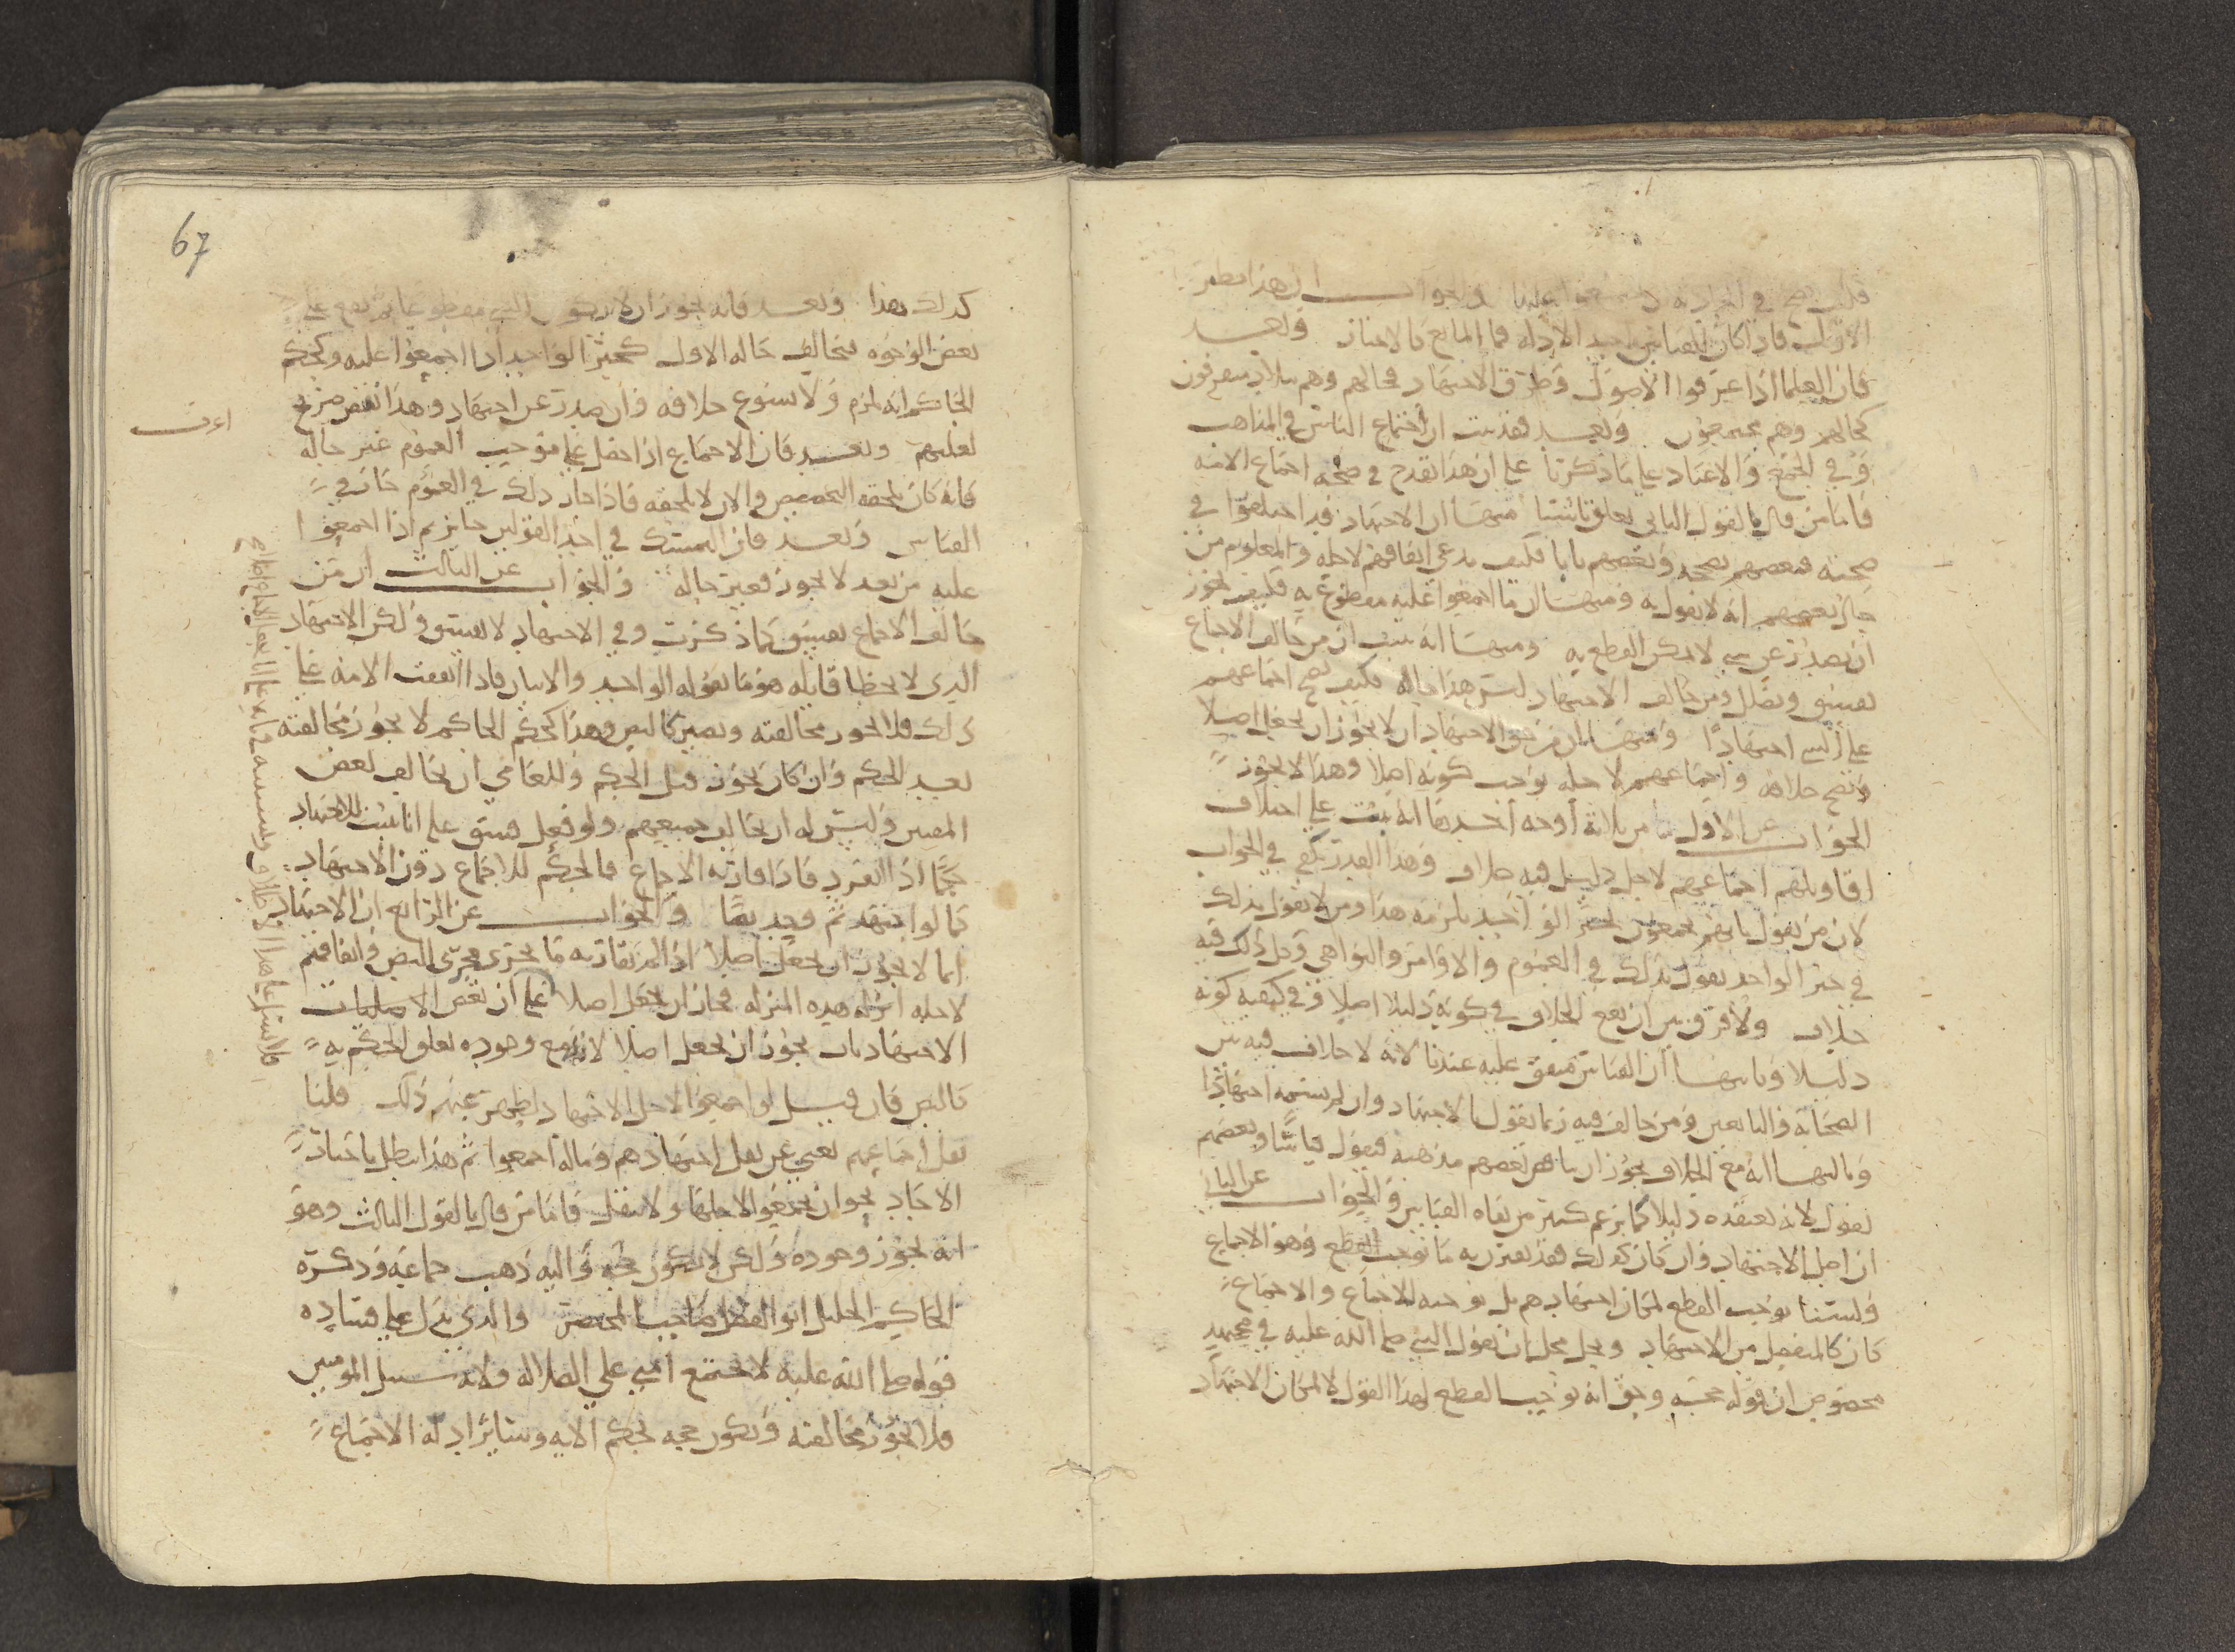 الاول فاذا كان القياس احد الادله فما المانع كالاخبار وبعد
فان العلما اذا عرفوا الاصول وطرق الاجتهاد فحالهم وهم بلاد متفرقون
كحالهم وهم مجتمعون وبعد فقد ثبت ان اجتماع الناس في المذاهب
وفي الجمع والاعياد على ما ذكرنا على ان هذا يقدح في صحه اجماع الامه
فاما من قال بالقول الثاني تعلق باشيا منها ان الاجتهاد قد اختلفوا في
صحته فبعضهم يصححه وبعضهم يابا فكيف يدعى اتفاقهم لاجله والمعلوم من
حال بعضهم انه لا يقول به ومنها ان ما اجمعوا عليه مقطوع به فكيف يجوز
ان يصدر عن شي لا يمكن القطع به ومنها انه ثبت ان من خالف الاجماع
يفسق ويضلل ومن خالف الاجتهاد ليس هذا حاله فكيف يصح اجماعهم
على الشي اجتهادا ومنها ان من حق الاجتهاد ان لا يجوز ان يجعل اصلا
ويصح خلافه واجماعهم لاجله يوجب كونه اصلا وهذا لا يجوز
الجواب عن الاول من ثلاثة أوجه أحدها انه يثبت على اختلاف
اقاويلهم اجماعهم لاجل دليل فيه خلاف وهذا القدر يكفي في الجواب
لان من يقول بانهم يجمعون لخبر الواحد يلزمه هذا ومن لا يقول بذلك
في خبر الواحد يقول بذلك في العموم والاوامر والنواهي وكل ذلك فيه
خلاف ولا فرق بين ان يقع الخلاف في كونه دليلا اصلا وفي كيفيه كونه
دليلا وثانيها أن القياس متفق عليه عندنا لانه لا خلاف فيه بين
الصحابة والتابعين ومن خالف فيه ربما يقول بالاجتهاد وان لم يسمه اجتهادا
وثالثها انه مع الخلاف يجوز ان يناقض بعضهم مذهبه فيقول قياسا وبعضهم
يقول لانه يعتقده دليلا كما يزعم كثير من نفاه القياس والجواب عن الثاني
ان اصل الاجتهاد وان كان كذلك فقد يقترن به ما يوجب القطع وهو الاجماع
ولسنا نوجب القطع لمكان اجتهادهم بل نوجبه للاجماع والاجماع
كان كالمنفصل من الاجتهاد ويحل محل ان يقول النبي صلى الله عليه في مجتهد
مخصوص ان قوله حجه وحق انه يوجب القطع لهذا القول لا لمكان الاجتهاد
67
بعض الوجوه فيخالف حاله الاول كخبر الواحد اذا اجمعوا عليه وكحكم
الحاكم انه يلزم ولا يسوغ خلافه وان صدر عن اجتهاد وهذا نقض صريح
لعلتهم وبعد فان الاجماع اذا حصل على موجب العموم غير حاله
فانه كان يلحقه التخصيص والان لا يلحقه فاذا جاز ذلك في العموم جاز في
القياس وبعد فان التمسك في احد القولين جايز ثم اذا اجمعوا
عليه من بعد لا يجوز فتغير حاله والجواب عن الثالث أن من
خالف الاجماع يفسق كما ذكرت وفي الاجتهاد لا يفسق ولكن الاجتهاد
الذي لا يخطا قايله هو ما يقوله الواحد والاثنان فاذا اتفقت الامه على
ذلك فلا يجوز مخالفته ويصير كالنص وهذا كحكم الحاكم لا يجوز مخالفته
بعد الحكم وان كان يجوز قبل الحكم وللعامي ان يخالف بعض
المفتين وليس له ان يخالف جميعهم ولو فعل فسق على انا نثبت للاجتهاد
حكما اذا انفرد فاذا قارنه الاجماع فالحكم للاجماع دون الاجتهاد
كما لو اجتهد ثم وجد نصا والجواب عن الرابع ان الاجتهاد
انما لا يجوز ان يجعل اصلا اذا لم يقارنه ما يجري مجرى النص واتفاقهم
لاجله انزله هذه المنزله فجاز ان يجعل اصلا على ان بعض الامارات
الاجتهاديات يجوز ان يجعل اصلا لانه مع وجوده تعلق الحكم به
كالنص فان قيل لو اجمعوا لاجل الاجتهاد لظهر عنهم ذلك قلنا
نقل اجماعهم يغني عن نقل اجتهادهم وما له اجمعوا ثم هذا يبطل باخبار
الاحاد يجوز ان يجمعوا لاجلها ولا ينقل فاما من قال بالقول الثالث وهو
انه يجوز وجوده ولكن لا يكون حجه واليه ذهب جماعه وذكره
الحاكم الجليل ابو الفضل صاحب المختصر والذي يدل على فساده
قوله صلى الله عليه لا تجتمع أمتي على الضلاله ولانه سبيل المومنين
فلا يجوز مخالفته ويكون حجه لحكم الايه وساير ادلة الاجماع